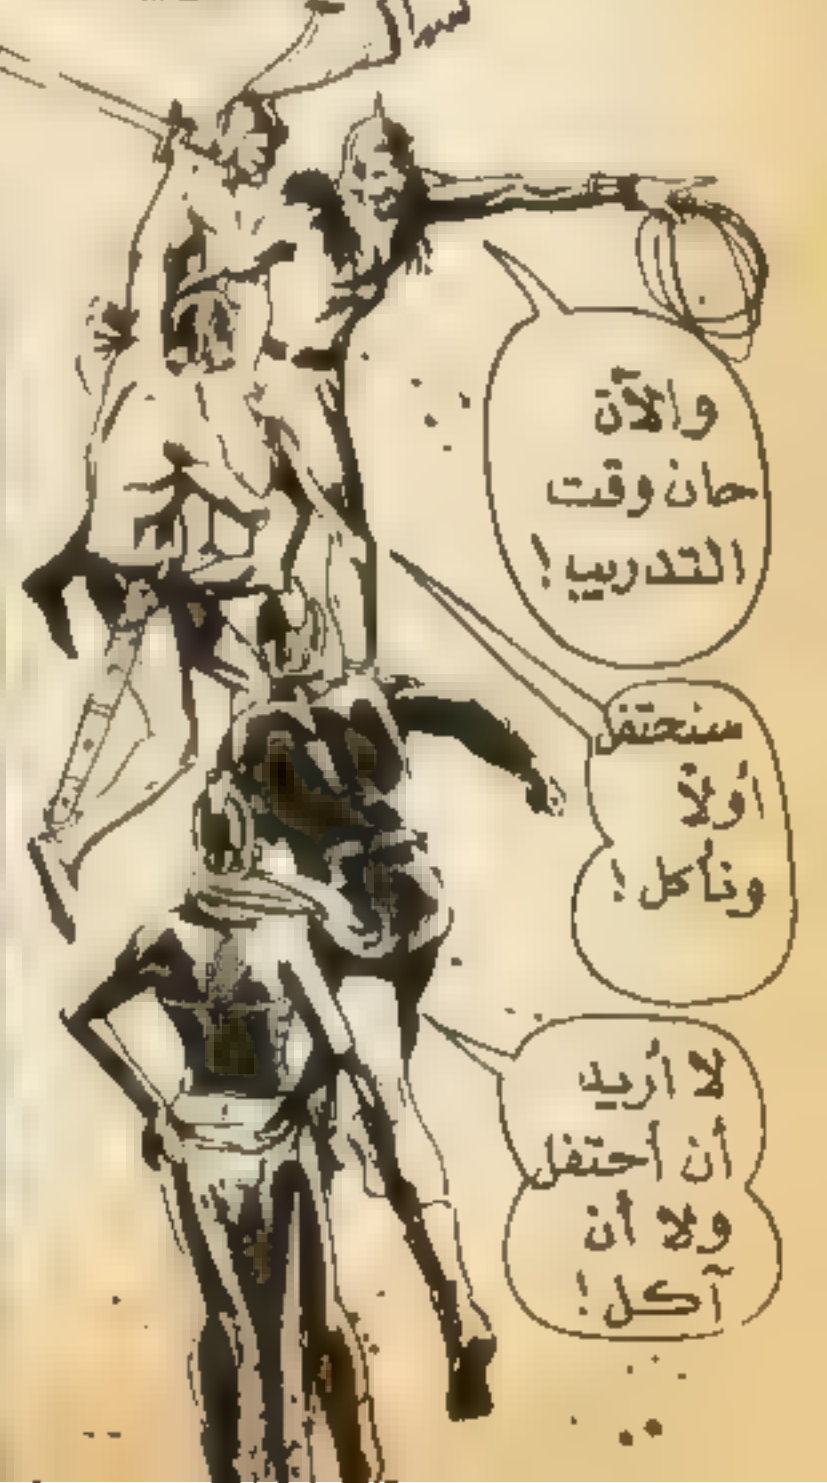 والآن
حان وقت
التدريب!
سنحتفل
أولًا
ونأكل!
لا أريد
أن أحتفل
ولا أن
آكل!